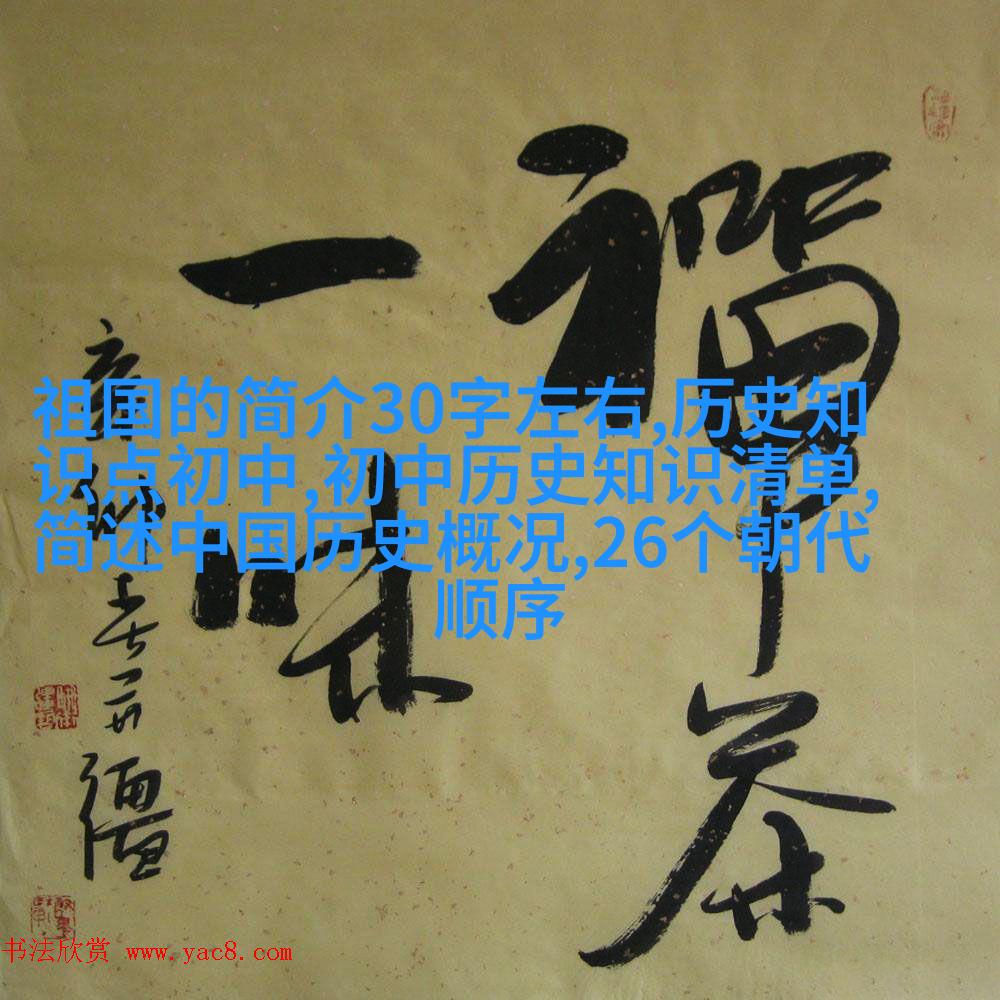 禅茶
一味
祖国的简介30字左右,历史知
识点初中,初中历史知识清单,
简述中国历史概况,26个朝代
顺序
书法欣赏 www.yac8.com